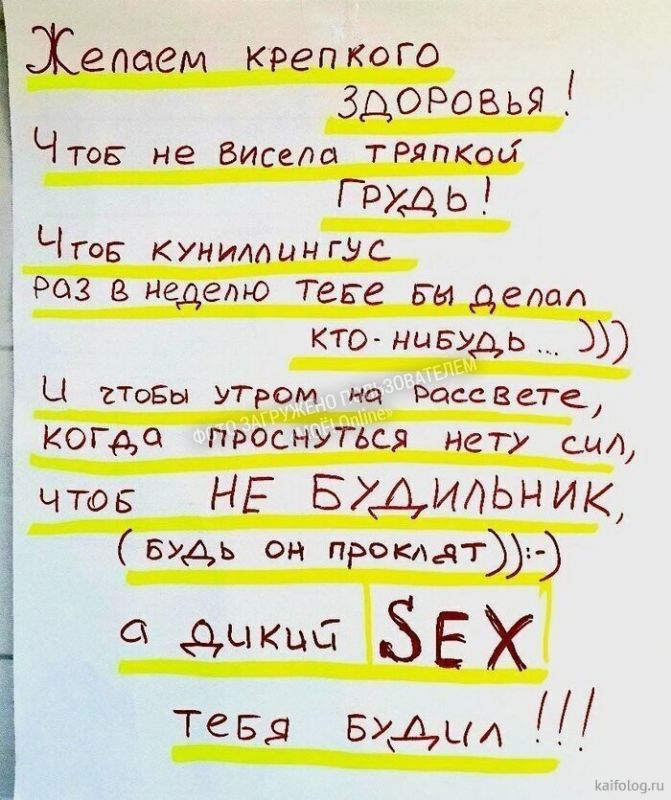 Желаем крепкого
здоровья!
Чтоб не висела тряпкой
грудь!
Чтоб куниллингус
раз в неделю тебе бы делал
кто-нибудь... )))
И чтобы утром на рассвете,
когда проснуться нету сил,
чтоб НЕ БУДИЛЬНИК,
(будь он проклят)):-)
а дикий SEX
тебя будил!!!
ФОТО ЗАГРУЖЕНО ПОЛЬЗОВАТЕЛЕМ
«МОЁ! Online»
kaifolog.ru